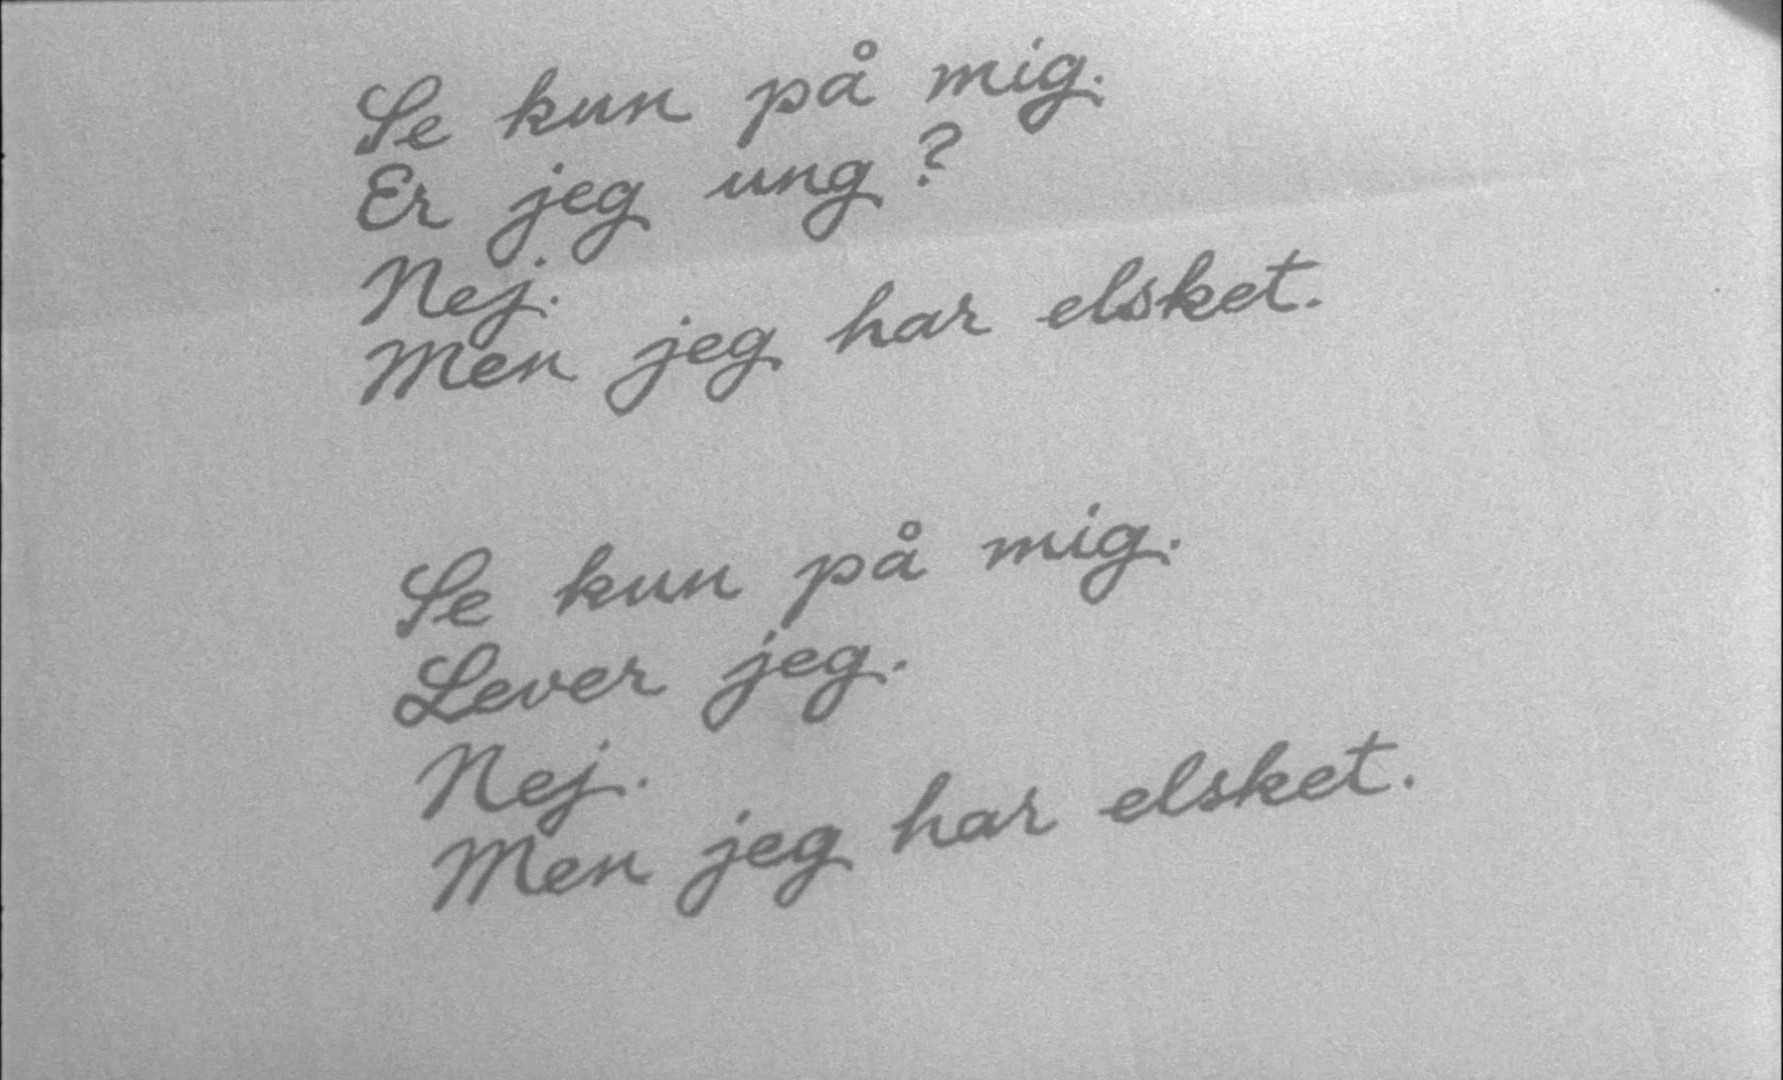 Se kun på mig.
Er jeg ung?
Nej.
Men jeg har elsket.
Se kun på mig.
Lever jeg.
Nej.
Men jeg har elsket.